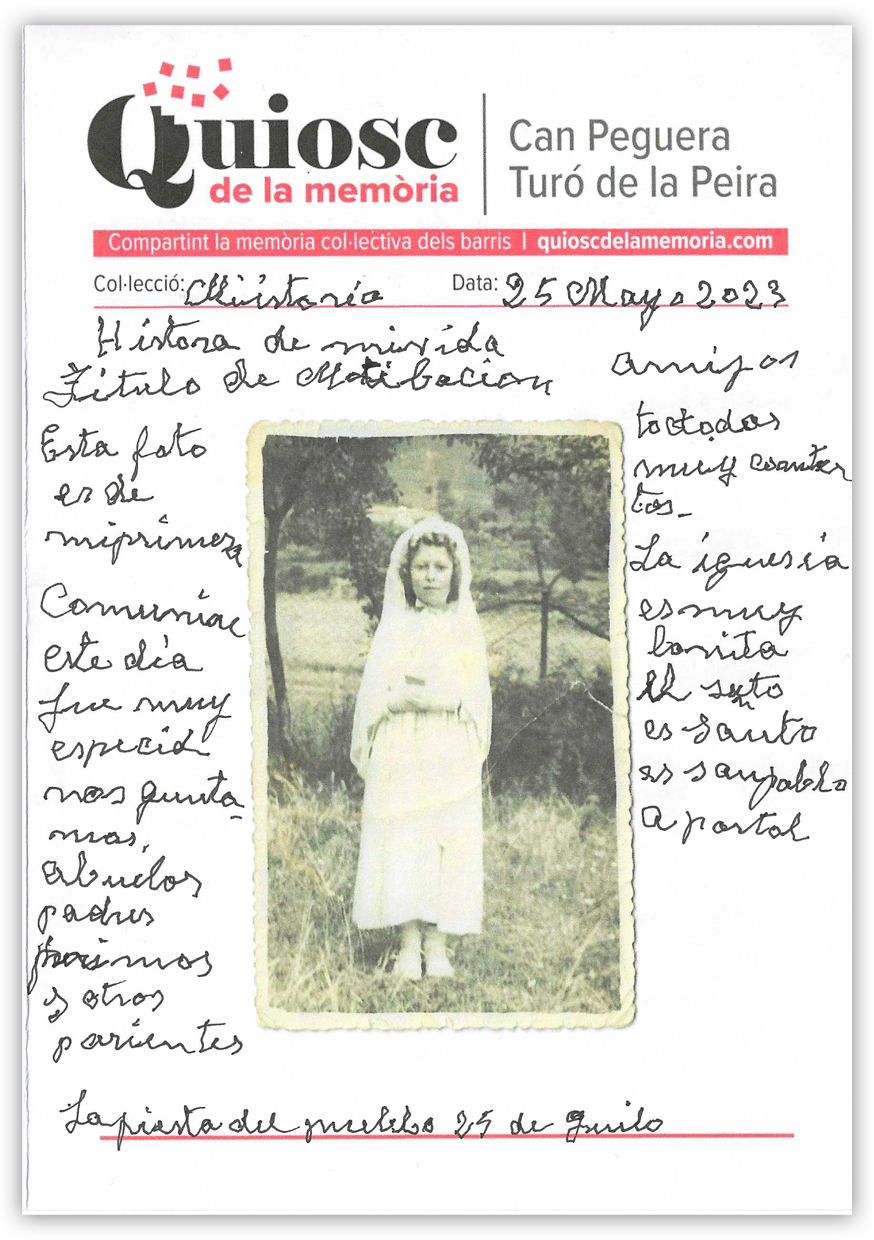 Quiosc
de la memòria
Can Peguera
Turó de la Peira
Compartint la memòria col·lectiva dels barris | quioscdelamemoria.com
Col·lecció: Mi istoria
Data: 25 Mayo 2023
Histora de mi vida
Titulo de Motibacion
Esta foto
es de
mi primera
Comunion
este dia
fue muy
especial
nos gunta-
mos,
abuelos
padres
primos
y otros
parientes
amigos
todos
muy conten
tos-
La iguesia
es muy
bonita
el
es Santo
es san pablo
apostol
La fiesta del pueblo 25 de Gunio